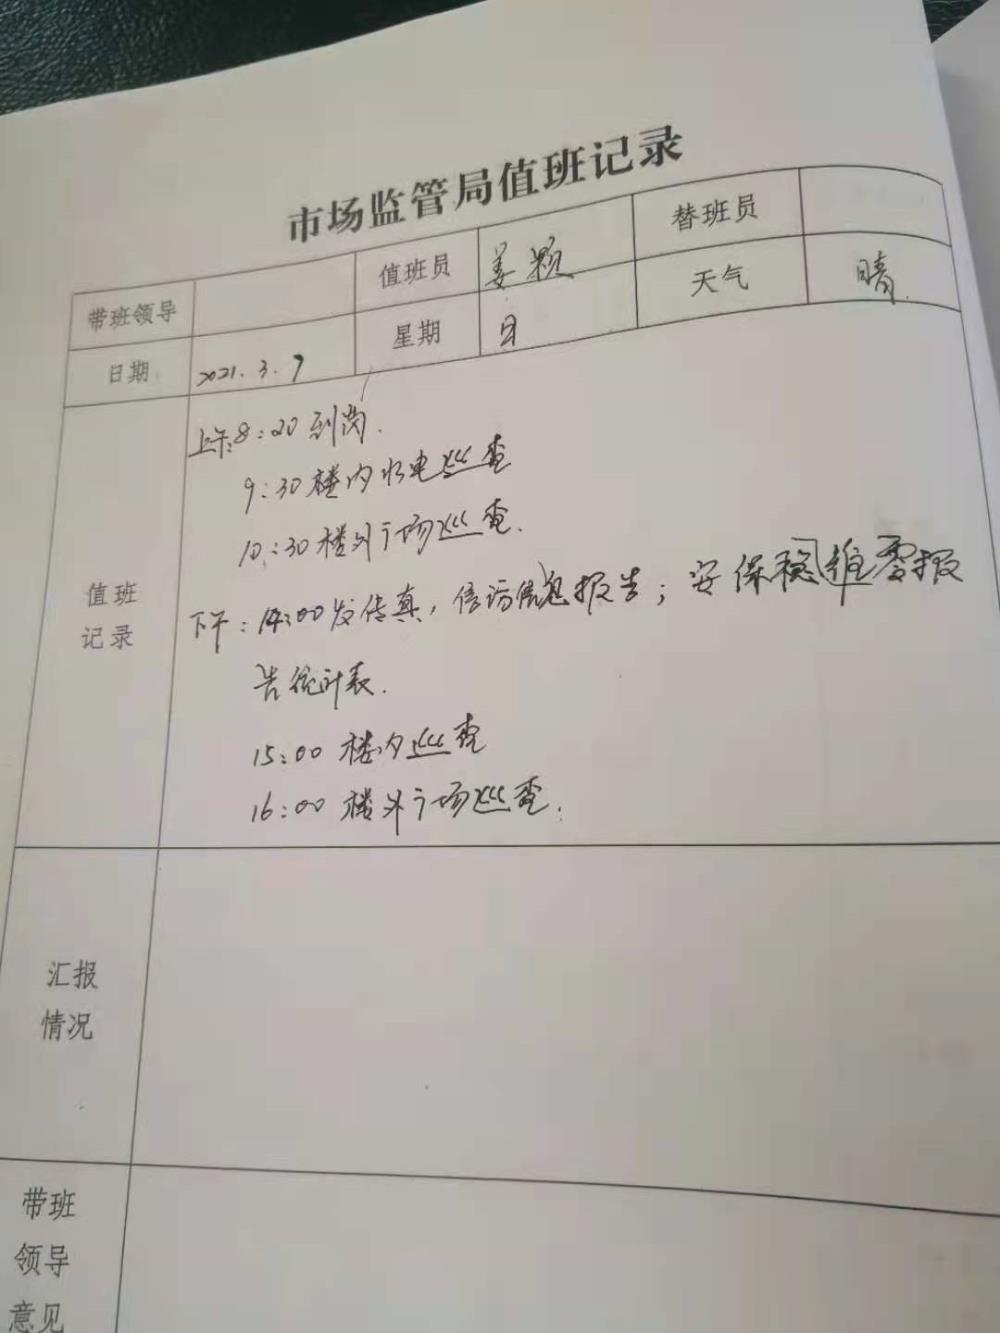 市场监管局值班记录
带班领导 值班员 姜颖 替班员
日期 2021.3.7 星期 日 天气 晴
值班记录
上午:8:20到岗.
9:30楼内水电巡查
10:30楼外广场巡查.
下午:14:00发传真,信访信息报告;安保稳维零报
告统计表.
15:00楼内巡查
16:00楼外广场巡查.
汇报
情况
带班
领导
意见